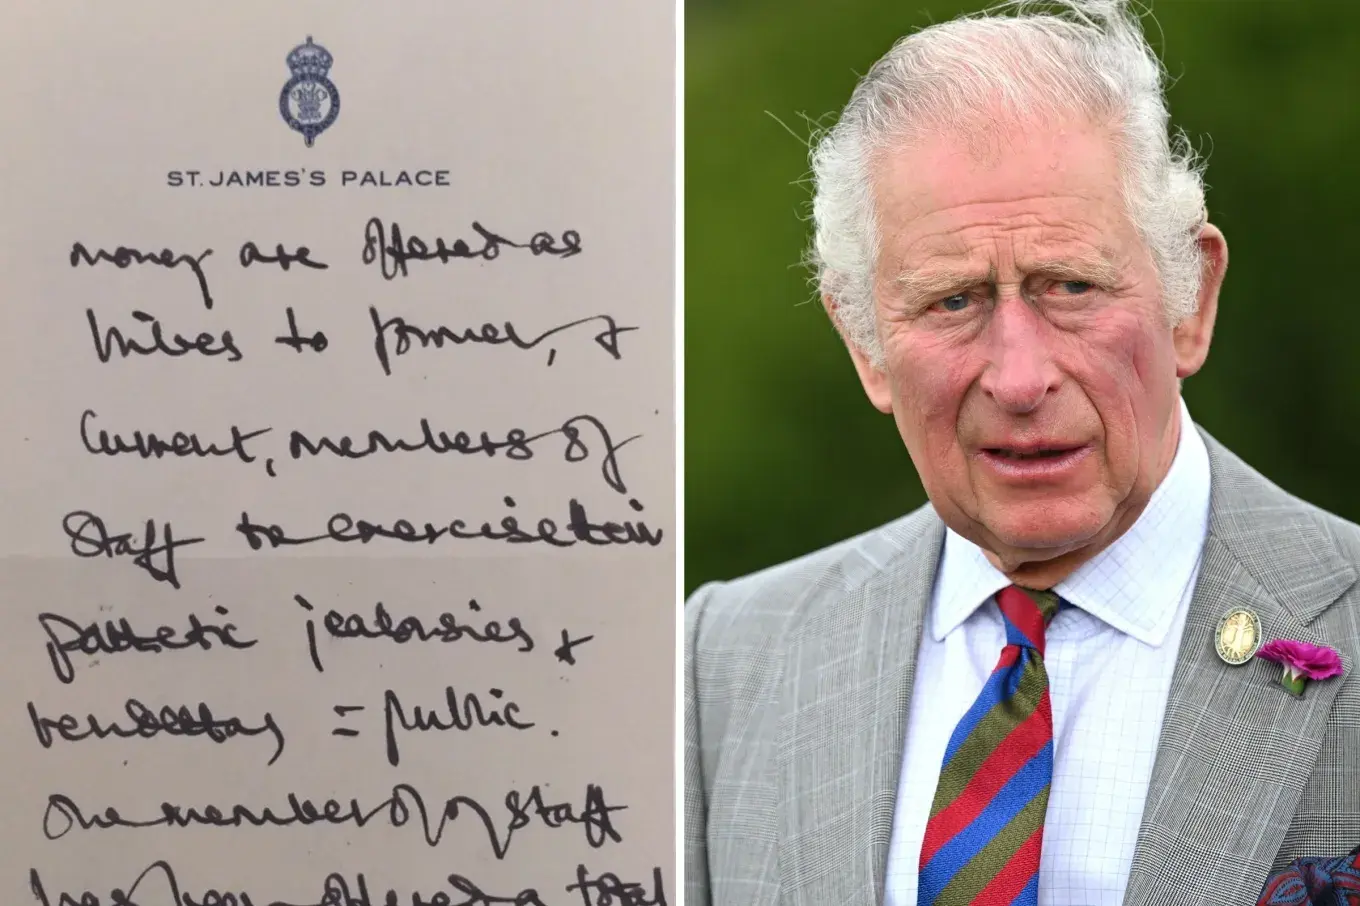 ST. JAMES'S PALACE
money are offered as
bribes to former, +
current, members of
staff to exercise their
pathetic jealousies +
vendettas in public.
One member of my staff
has been offered a total